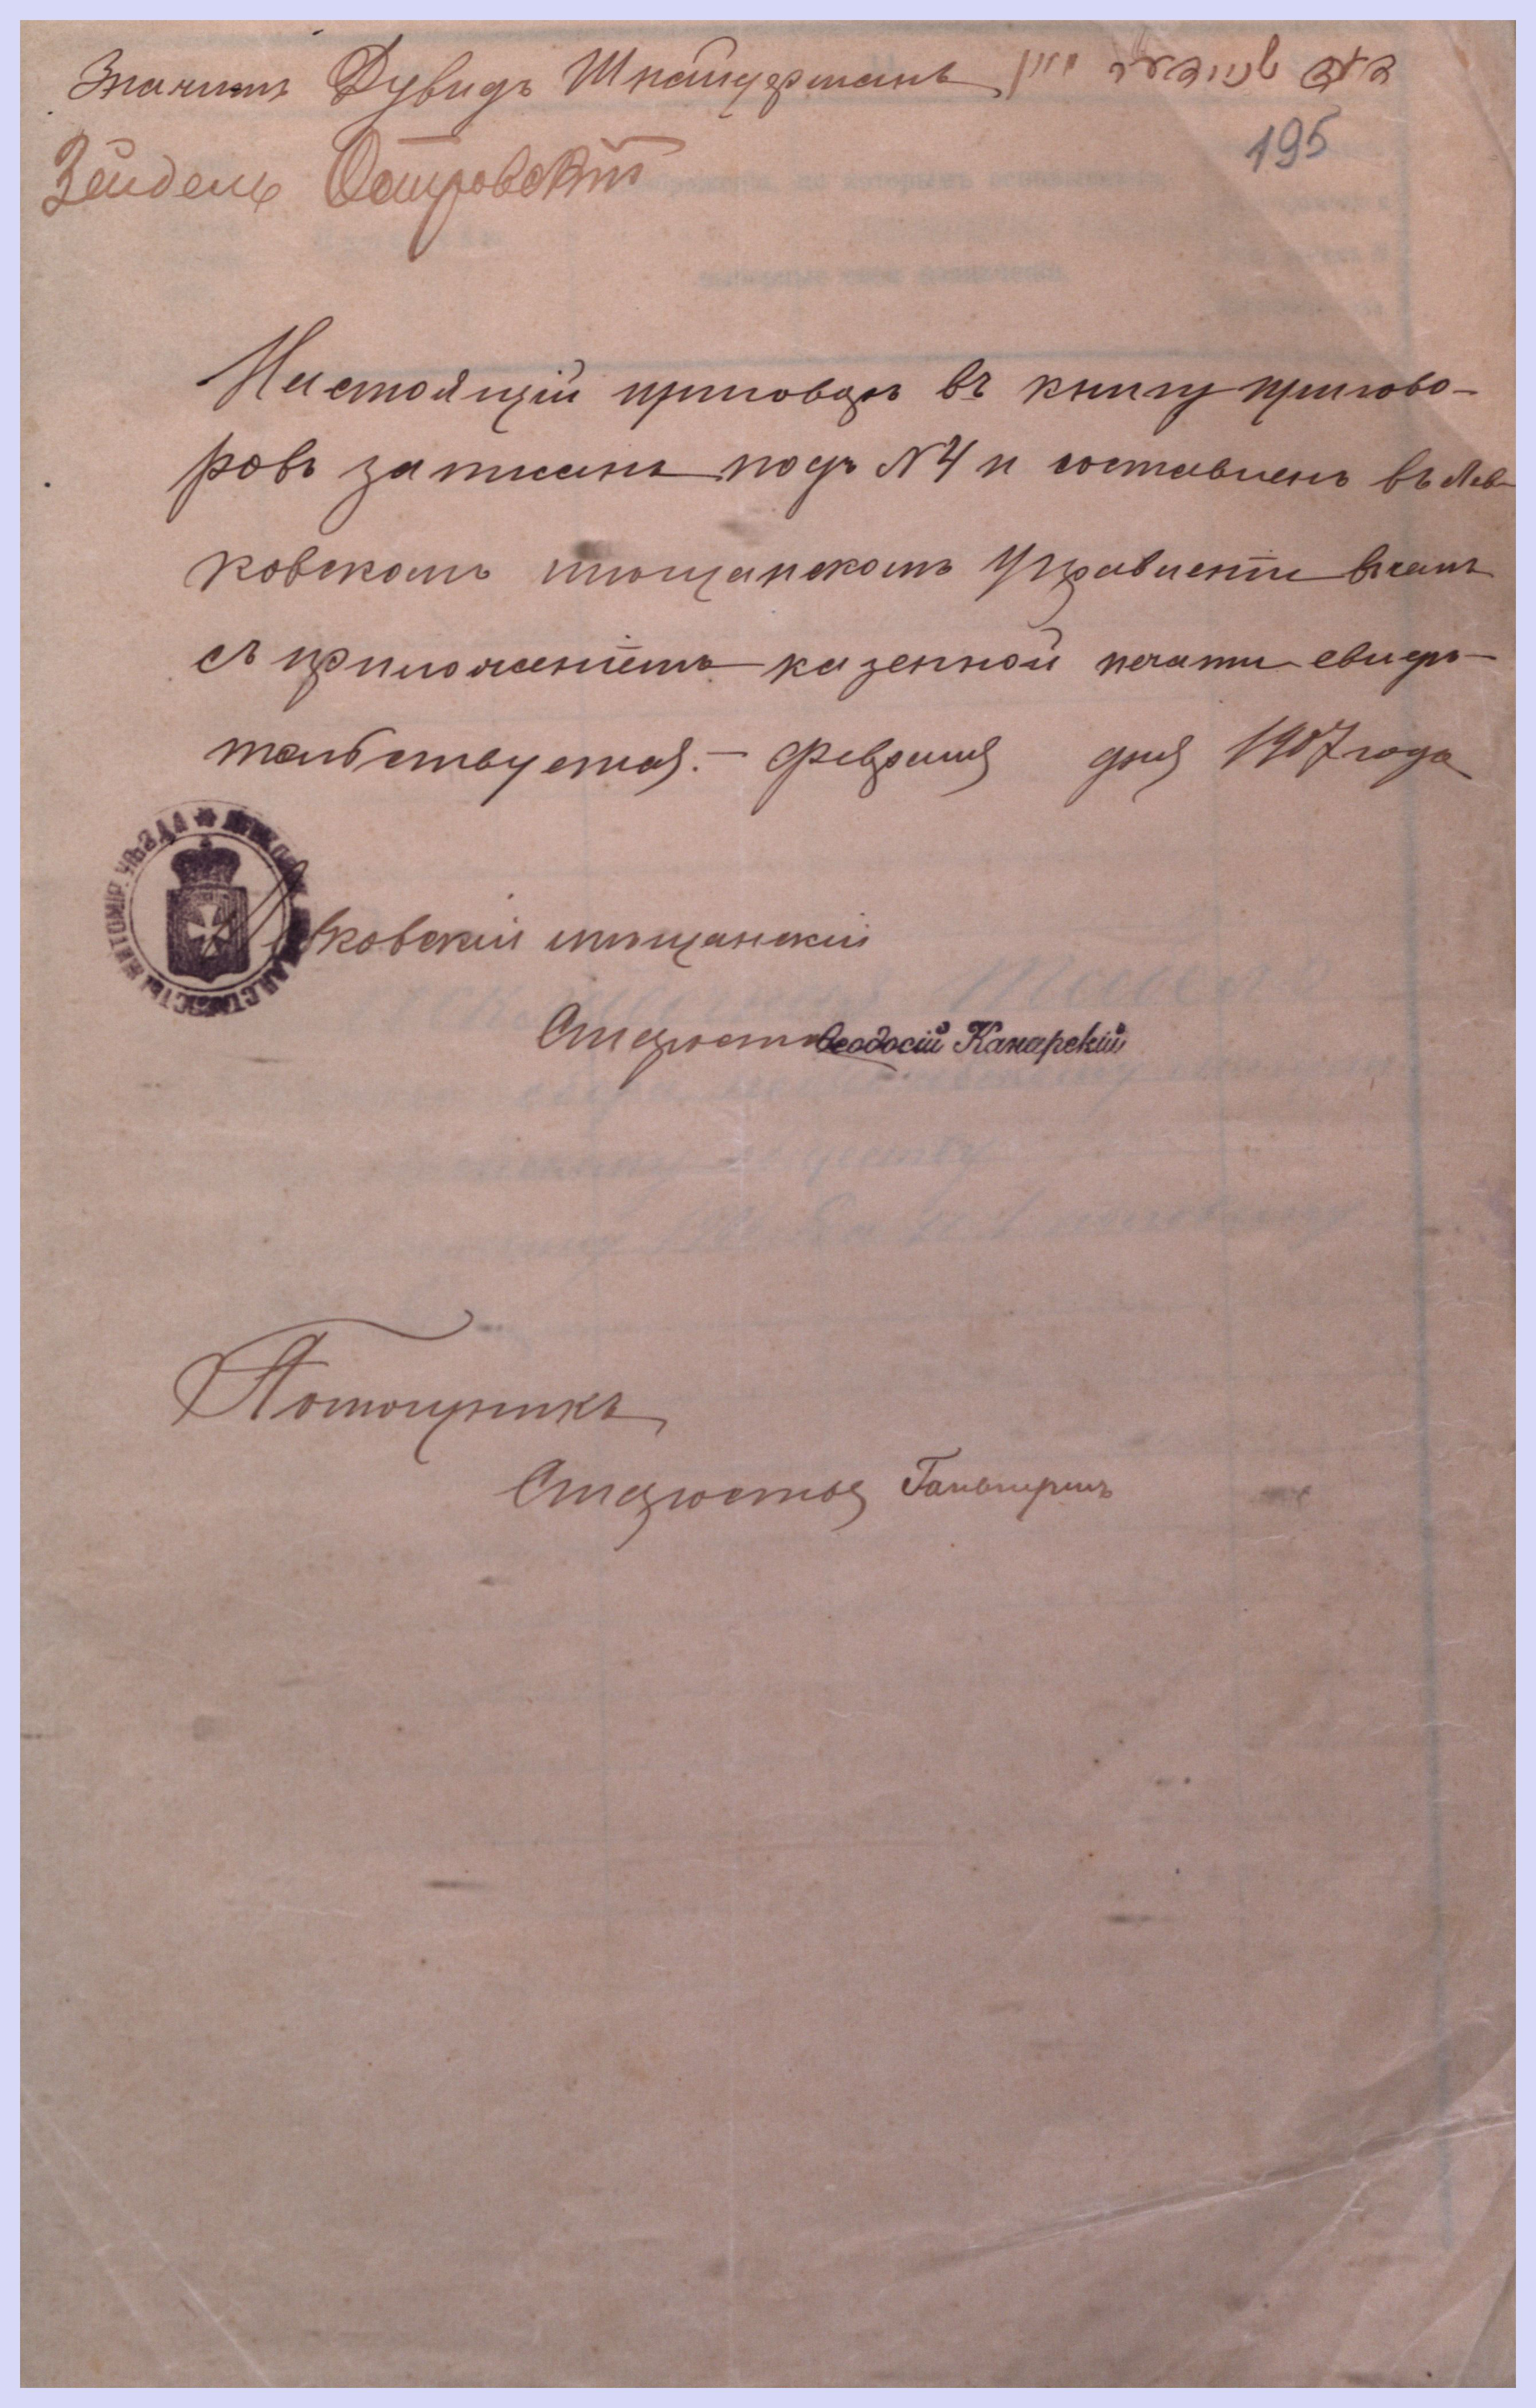 Значитъ Дувидъ Шнайдерманъ
195
Зейдель Островскій
Настоящій приговоръ въ книгу пригово-
ровъ записанъ подъ № 4 и составленъ въ Лев-
ковскомъ мѣщанскомъ Управленіи въ чемъ
съ приложеніемъ казенной печати свидѣ-
тельствуется. – Февраля дня 1907 года
ЖИТОМІР. УѢЗДА
Левковскій мѣщанскій
Староста Ѳеодосій Канарскій
Помощникъ
Старосты